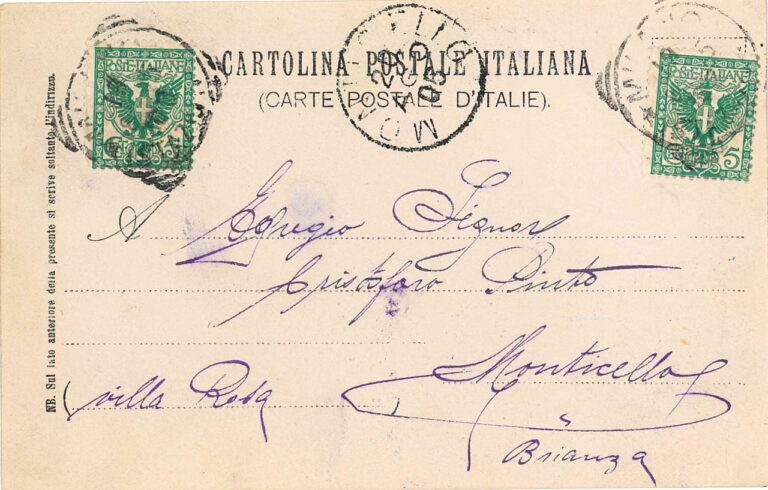 POSTE ITALIANE
5
CARTOLINA POSTALE ITALIANA
(CARTE POSTALE D'ITALIE).
20
03
MILANO
POSTE ITALIANE
5
NB. Sul lato anteriore della presente si scrive soltanto l'indirizzo.
A Egregio Signor
Cristoforo Pinto
Monticello
(villa Rosa)
Brianza